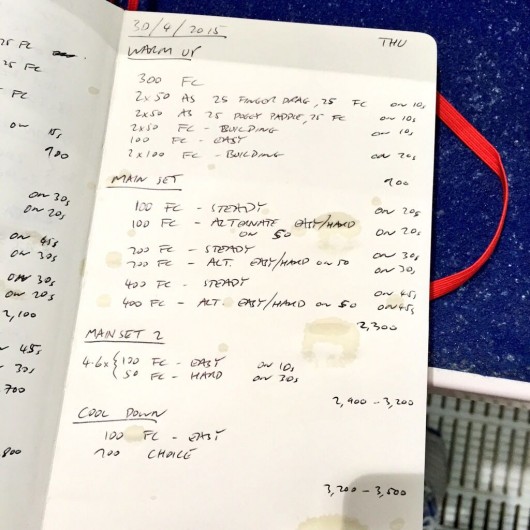 25 FC
25 FC
FC
ON 15s
ON 30s
ON 20s
ON 45s
ON 30s
ON 30s
ON 20s
2,100
ON 45s
30s
30/4/2015 THU
WARM UP
300 FC
2x50 AS 25 FINGER DRAG, 25 FC ON 10s
2x50 AS 25 DOGGY PADDLE, 25 FC ON 10s
2x50 FC - BUILDING ON 10s
100 FC - EASY
2x100 FC - BUILDING ON 20s
900
MAIN SET
100 FC - STEADY ON 20s
100 FC - ALTERNATE EASY/HARD
ON 50 ON 20s
200 FC - STEADY ON 30s
200 FC - ALT. EASY/HARD ON 50 ON 30s
400 FC - STEADY ON 45s
400 FC - ALT. EASY/HARD ON 50 ON 45s
2,300
MAIN SET 2
4-6x { 100 FC - EASY ON 10s
50 FC - HARD ON 30s
2,900 - 3,200
COOL DOWN
100 FC - EASY
200 CHOICE
3,200 - 3,500